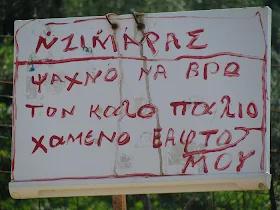 ΝΖΙΜΑΡΑΣ
ΨΑΧΝΟ ΝΑ ΒΡΩ
ΤΟΝ ΚΑΛΟ ΠΑΛΙΟ
ΧΑΜΕΝΟ ΕΑΦΤΟ
ΜΟΥ